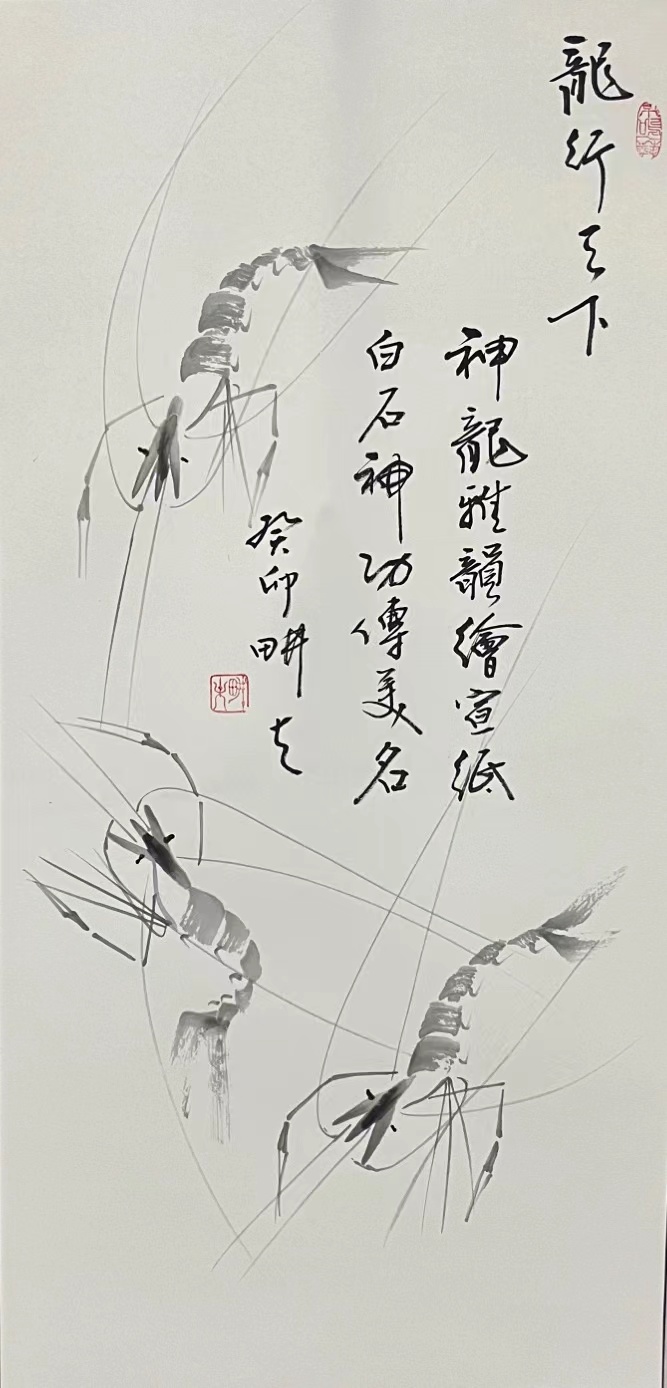 龍行天下
神龍雅韻繪宣紙
白石神功傳美名
癸卯 畊夫